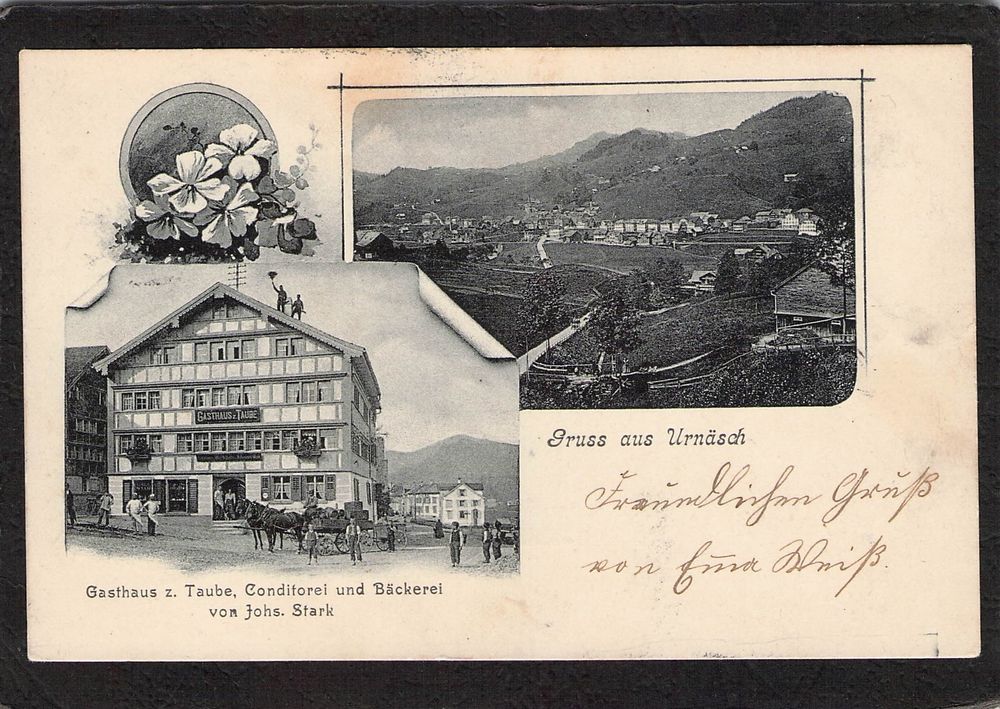 GASTHAUS Z. TAUBE
Gruss aus Urnäsch
Freundlichen Gruß
von Emma Weiß.
Gasthaus z. Taube, Conditorei und Bäckerei
von Johs. Stark